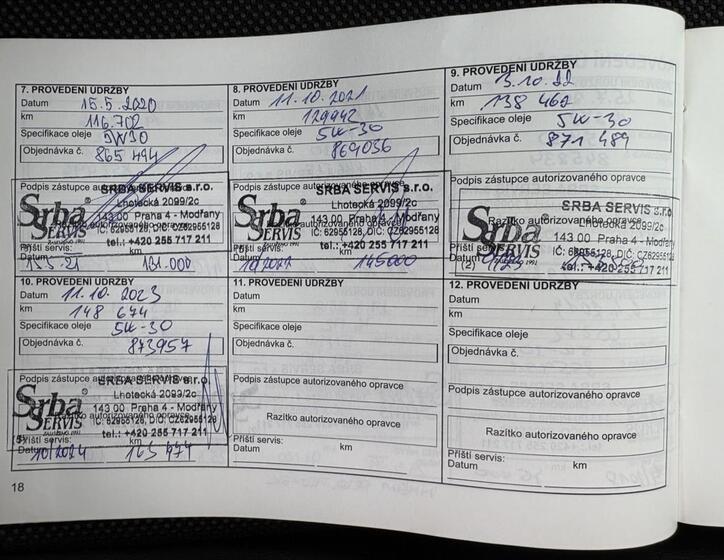 7. PROVEDENÍ ÚDRŽBY
Datum 15.5.2020
km 116.702
Specifikace oleje 5W30
Objednávka č. 865 494
Podpis zástupce autorizovaného opravce
SRBA SERVIS s.r.o.
Lhotecká 2099/2c
143 00 Praha 4 - Modřany
IČ: 62955128, DIČ: CZ62955128
tel.: +420 255 717 211
Srba SERVIS
Příští servis:
Datum 15.5.21 km 131.000
8. PROVEDENÍ ÚDRŽBY
Datum 11.10.2021
km 129942
Specifikace oleje 5W-30
Objednávka č. 869036
Podpis zástupce autorizovaného opravce
SRBA SERVIS s.r.o.
Lhotecká 2099/2c
143 00 Praha 4 - Modřany
IČ: 62955128, DIČ: CZ62955128
tel.: +420 255 717 211
Srba SERVIS
Příští servis:
Datum 10/2022 km 145000
9. PROVEDENÍ ÚDRŽBY
Datum 3.10.22
km 138 462
Specifikace oleje 5W-30
Objednávka č. 871 489
Podpis zástupce autorizovaného opravce
SRBA SERVIS s.r.o.
Razítko autorizovaného opravce
Lhotecká 2099/2c
143 00 Praha 4 - Modřany
IČ: 62955128, DIČ: CZ62955128
tel.: +420 255 717 211
Srba SERVIS
Příští servis:
Datum
10. PROVEDENÍ ÚDRŽBY
Datum 11.10.2023
km 148 674
Specifikace oleje 5W-30
Objednávka č. 873957
Podpis zástupce autorizovaného opravce
SRBA SERVIS s.r.o.
Lhotecká 2099/2c
143 00 Praha 4 - Modřany
Razítko autorizovaného opravce
IČ: 62955128, DIČ: CZ62955128
tel.: +420 255 717 211
Srba SERVIS
Příští servis:
Datum 10/2024 km 163 674
11. PROVEDENÍ ÚDRŽBY
Datum
km
Specifikace oleje
Objednávka č.
Podpis zástupce autorizovaného opravce
Razítko autorizovaného opravce
Příští servis:
Datum km
12. PROVEDENÍ ÚDRŽBY
Datum
km
Specifikace oleje
Objednávka č.
Podpis zástupce autorizovaného opravce
Razítko autorizovaného opravce
Příští servis:
Datum km
18